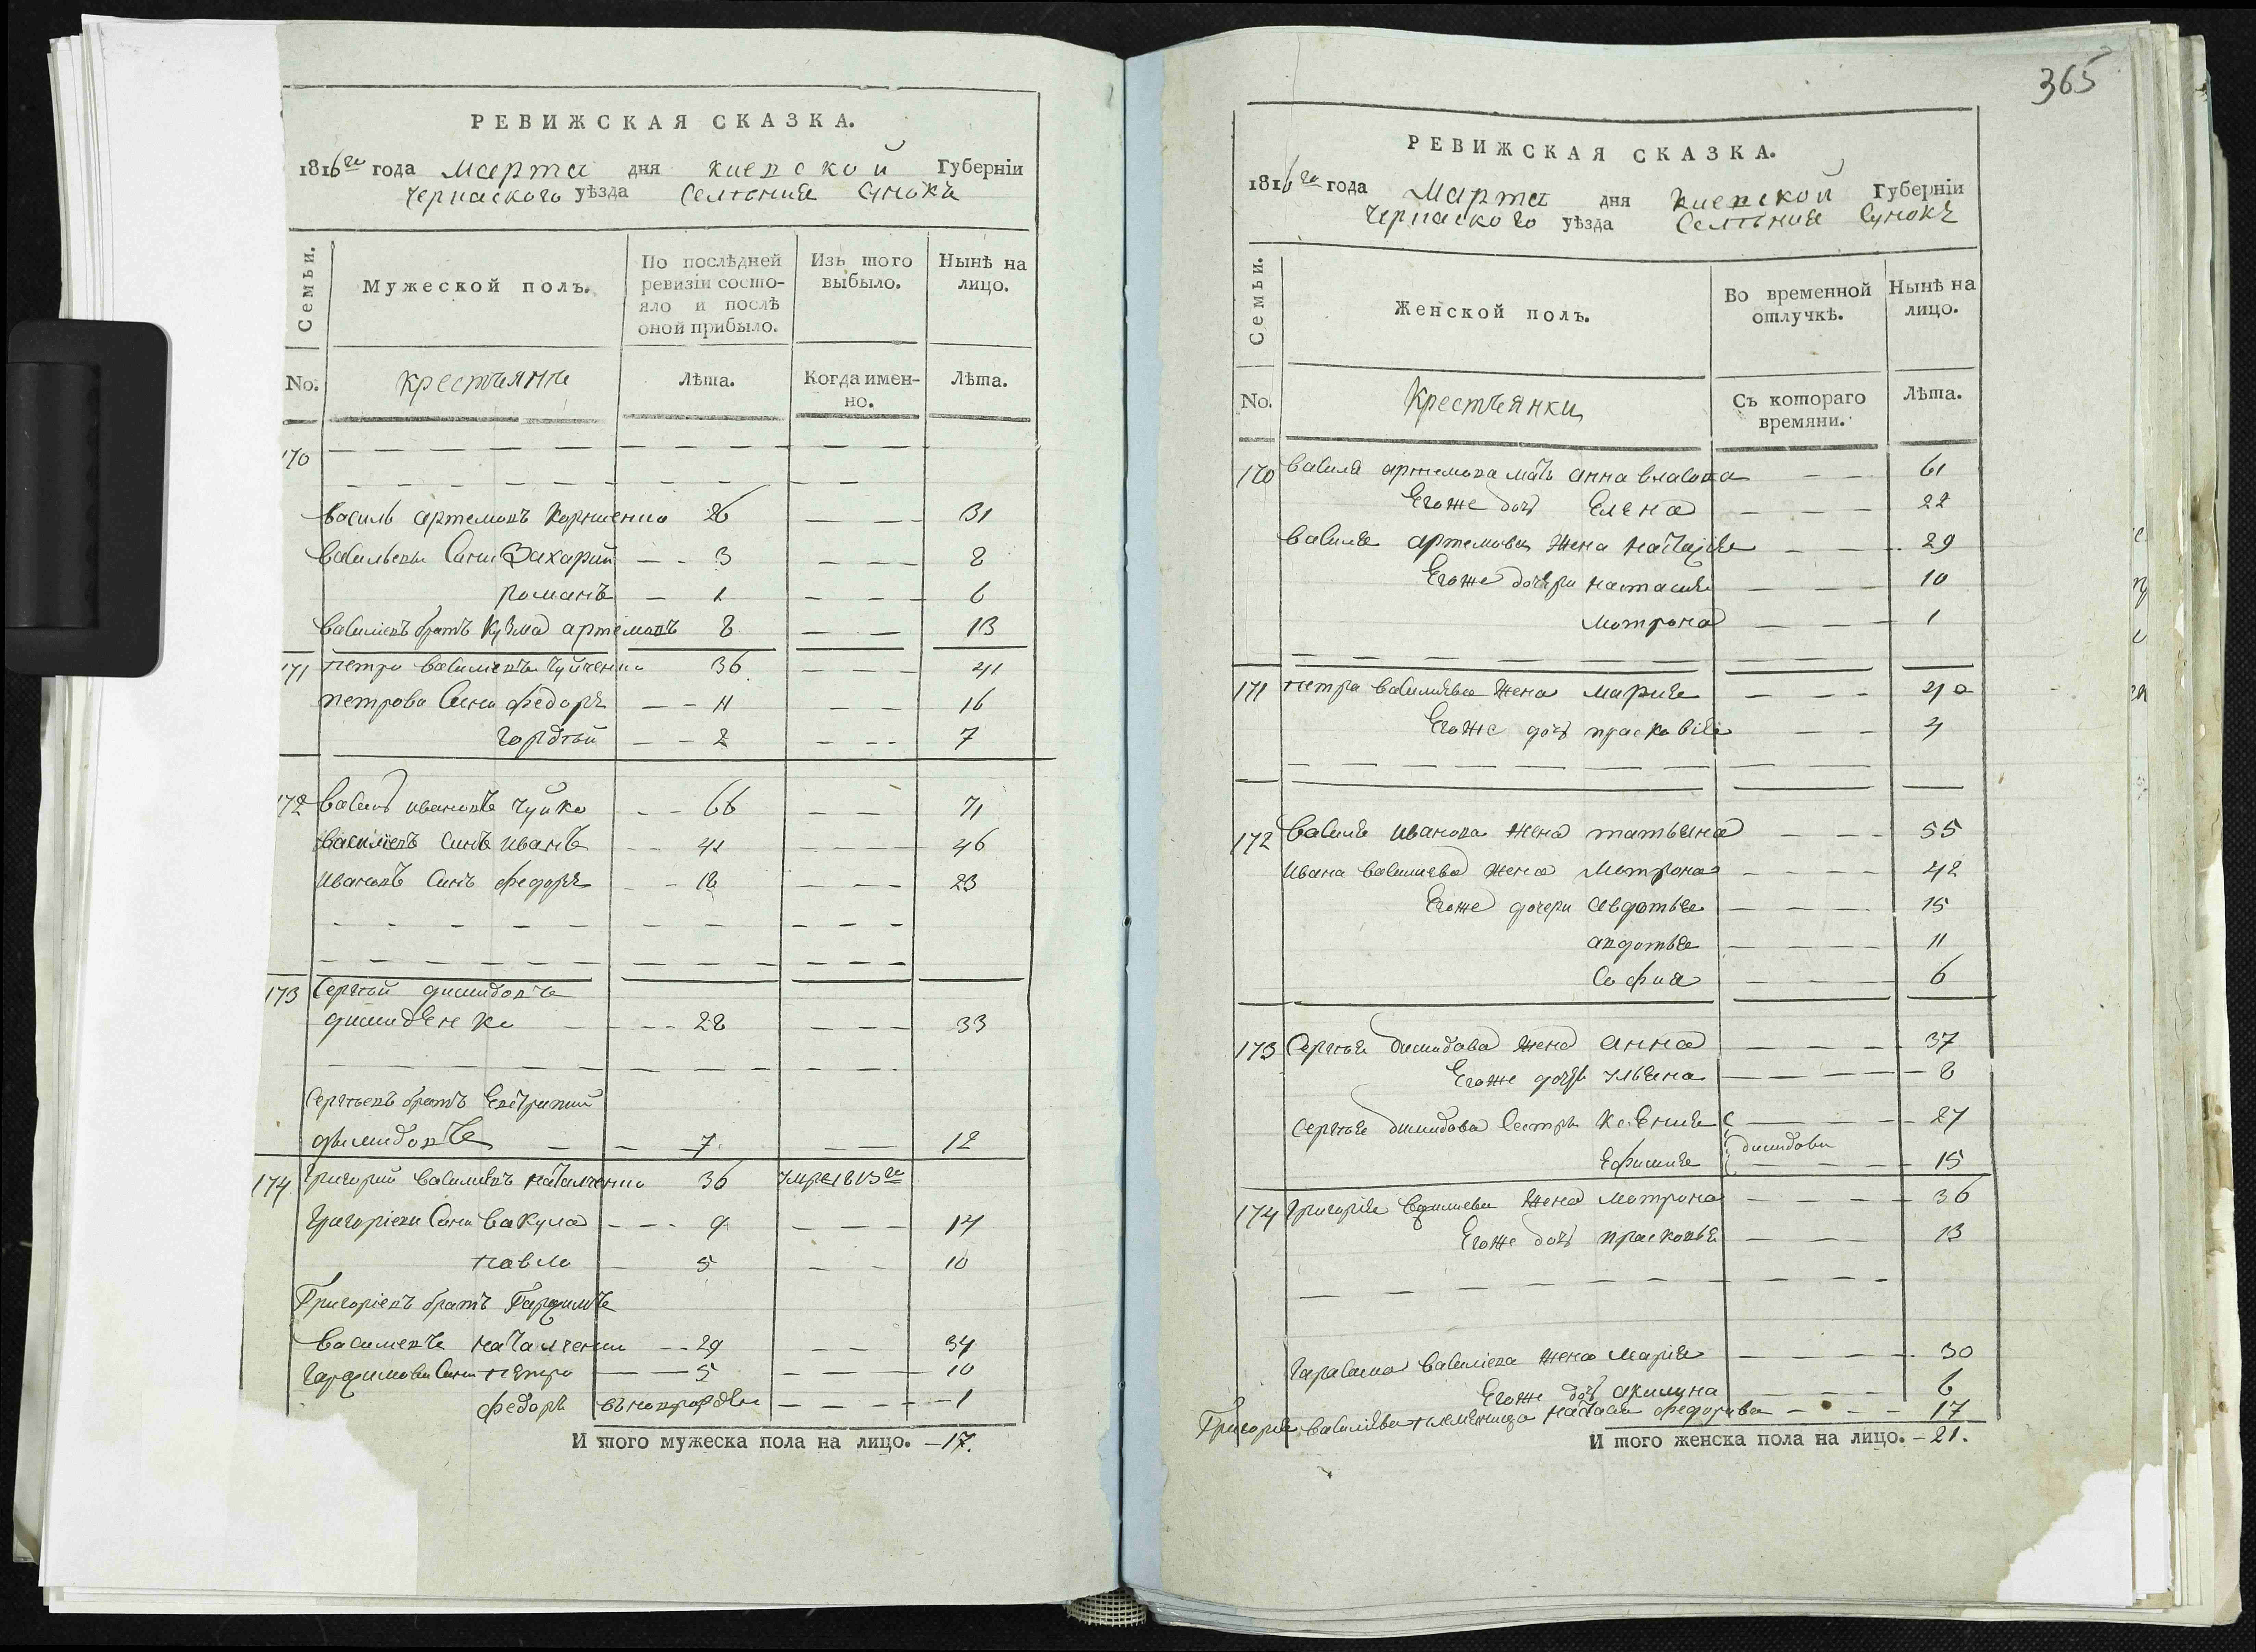 РЕВИЖСКАЯ СКАЗКА.
1816го года Марта дня киевской Губерніи
черкаского уѣзда Селѣния Сунокъ
Семьи.
Мужеской полъ.
По послѣдней ревизіи состояло и послѣ оной прибыло.
Изъ того выбыло.
Нынѣ на лицо.
No.
крестъяне
Лѣта.
Когда именно.
Лѣта.
170
василь артемовъ Корниенко 26 31
васильевы Сини Захарий 3 8
романъ 1 6
василиевъ братъ кузма артемовъ 8 13
171 петро василиевъ чуйченко 36 41
петрова Сини федоръ 11 16
гордѣй 2 7
172 василь ивановъ чуйко 66 71
василиевъ Синъ иванъ 41 46
ивановъ Синъ федоръ 18 23
173 Сергѣй димидовъ
димиденко 28 33
Сергѣевъ братъ
димидовъ 7 12
174 Григорий василиевъ наталченко 36 умре 1813го
Григориеви Сини вакула 9 14
павло 5 10
Григоріевъ братъ Гарасимъ
василиевъ наталченко 29 34
Гарасимови Сини петро 5 10
федоръ вноворожден 1
И того мужеска пола на лицо. 17.
365
РЕВИЖСКАЯ СКАЗКА.
1816го года Марта дня киевской Губерніи
черкаского уѣзда Селѣния Сунокъ
Семьи.
Женской полъ.
Во временной отлучкѣ.
Нынѣ на лицо.
No.
Крестъянки
Съ котораго времяни.
Лѣта.
170 василя артемова мать анна власова 61
Егоже дочь Елена 22
василя артемова жена наталия 29
Егоже дочери настасия 10
мотрона 1
171 петра василиева жена мария 40
Егоже дочь прасковія 4
172 василя иванова жена татьяна 55
ивана василиева жена мотрона 42
Егоже дочери авдотья 15
авдотья 11
София 6
173 Сергѣя димидова жена анна 37
Егоже дочь ульяна 8
Сергѣя димидова Сестры ксения 27
Ефимия димидови 15
174 Григория василиева жена мотрона 36
Егоже дочь прасковья 13
Гарасима василиева жена марія 30
Егоже дочь акилина 6
Григория василиева племяница федорова 17
И того женска пола на лицо. 21.